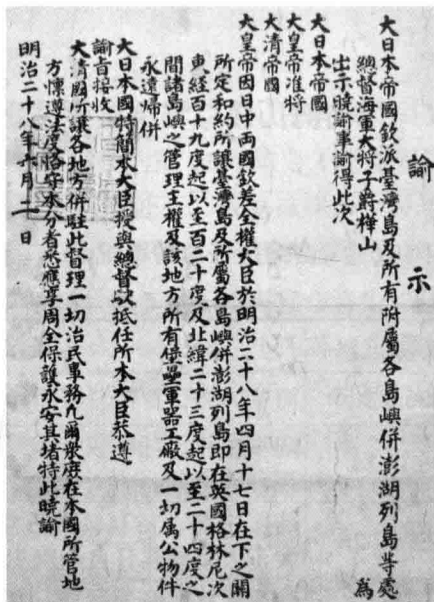 諭示
大日本帝國欽派臺灣島及所有附屬各島嶼併澎湖列島等處
總督海軍大将子爵樺山 為
出示曉諭事諭得此次
大日本帝國
大皇帝准將
大清帝國
大皇帝因日中両國欽差全權大臣於明治二十八年四月十七日在下之關
所定和約所讓臺灣島及所屬各島嶼併澎湖列島即在英國格林尼次
東経百十九度起以至百二十度及北緯二十三度起以至二十四度之
間諸島嶼之管理主權及該地方所有堡壘軍器工廠及一切属公物件
永遠歸併
大日本國特簡本大臣授與總督欽抵任所本大臣恭遵
諭旨接收
大清國所讓各地方併駐此督理一切治民事務凡爾衆庶在本國所管地
方懍遵法度恪守本分者悉應享周全保護永安其堵特此曉諭
明治二十八年六月二日